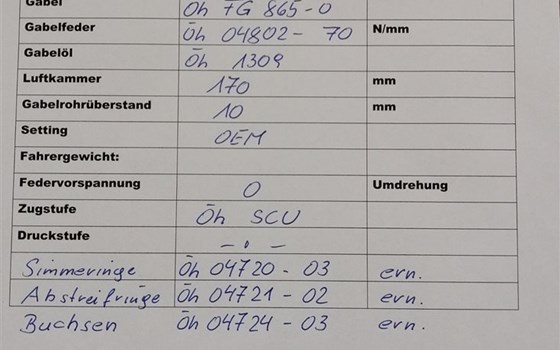 Gabel Öh FG 865-0
Gabelfeder Öh 04802-70 N/mm
Gabelöl Öh 1309
Luftkammer 170 mm
Gabelrohrüberstand 10 mm
Setting OEM
Fahrergewicht:
Federvorspannung 0 Umdrehung
Zugstufe Öh SCU
Druckstufe – " –
Simmeringe Öh 04720-03 ern.
Abstreifringe Öh 04721-02 ern.
Buchsen Öh 04724-03 ern.